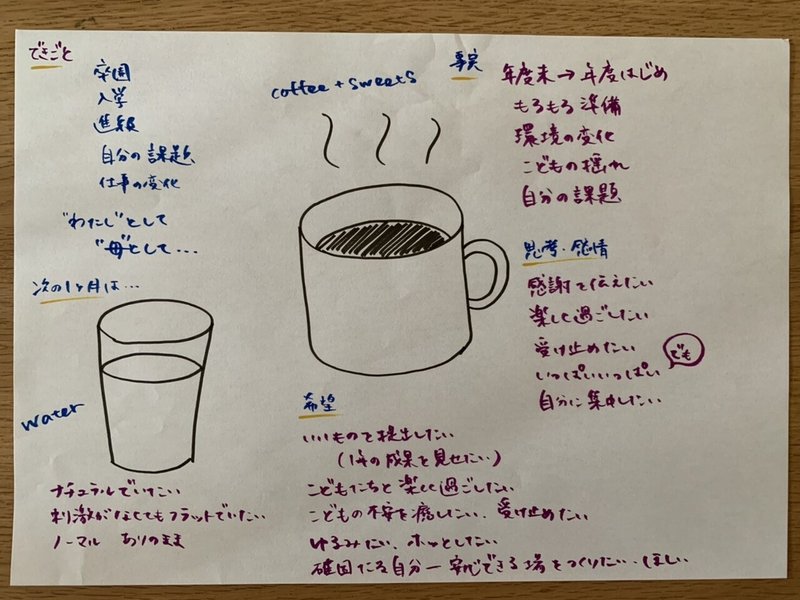 できごと
卒園
入学
進級
自分の課題
仕事の変化
"わたし"として
"母"として...
次の1ヶ月は...
water
ナチュラルでいたい
刺激がなくてもフラットでいたい
ノーマル ありのまま
coffee + sweets
事実
年度末→年度はじめ
もろもろ準備
環境の変化
こどもの揺れ
自分の課題
思考・感情
感謝を伝えたい
楽しく過ごしたい
受け止めたい
いっぱいいっぱい
でも
自分に集中したい
希望
いいものを提出したい
(1年の成果を見せたい)
こどもたちと楽しく過ごしたい
こどもの不安を癒したい、受け止めたい
ゆるみたい、ホッとしたい
確固たる自分ー安心できる場をつくりたい・ほしい